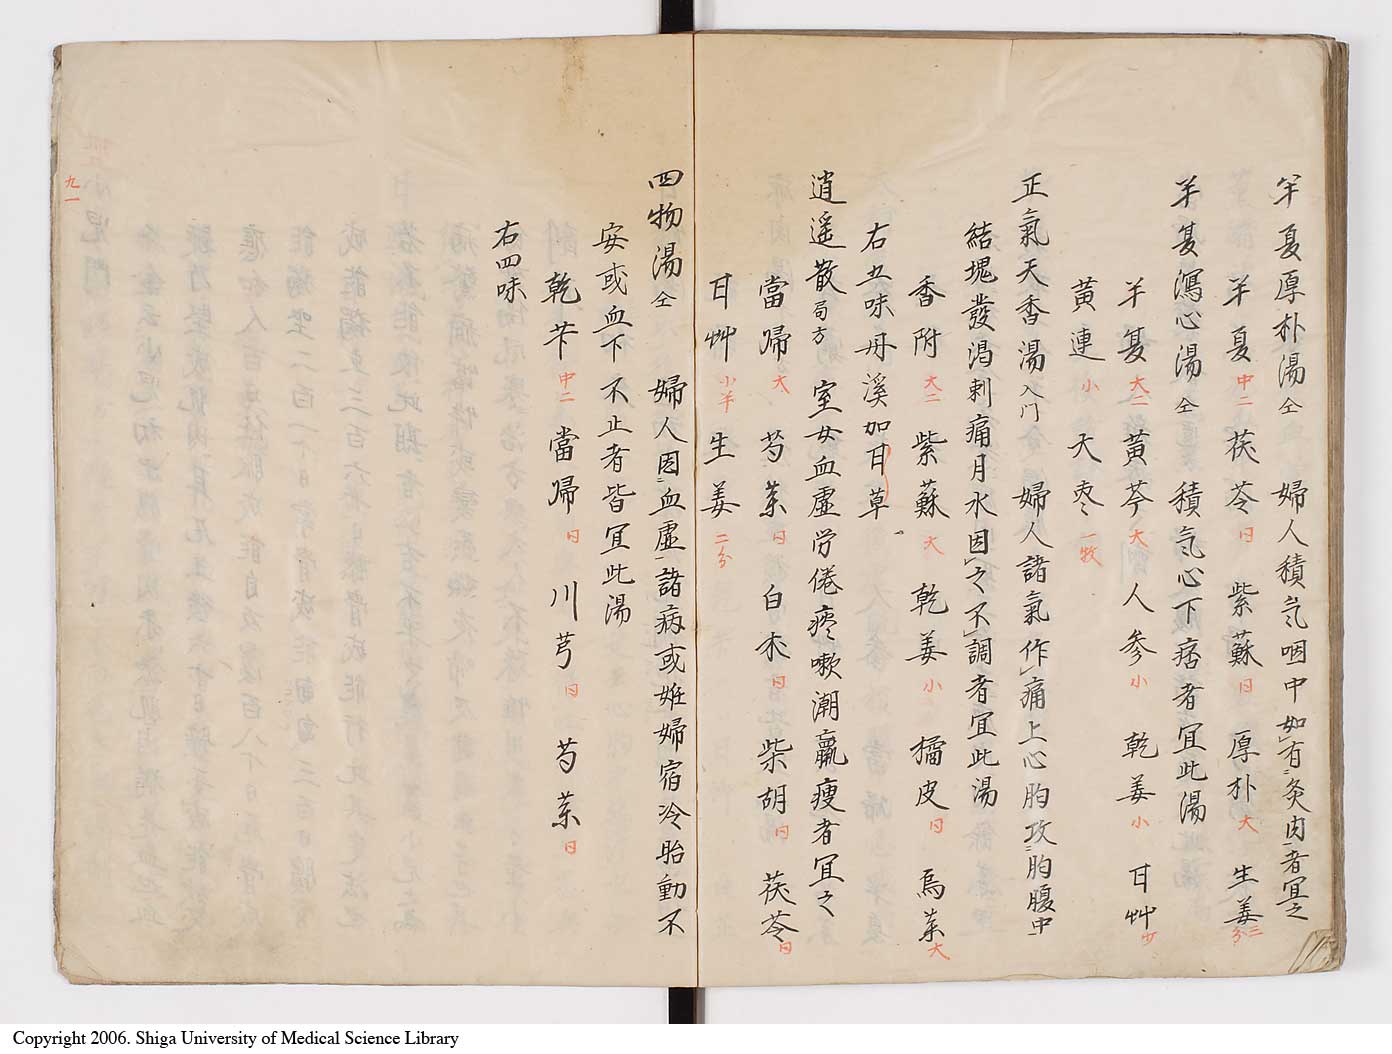 半夏厚朴湯仝 婦人積気咽中如有炙肉者宜之
半夏中二 茯苓日 紫蘇日 厚朴大 生姜三分
半夏瀉心湯仝 積気心下痞者宜此湯
半夏大二 黄芩大 人参小 乾姜小 甘艸少
黄連小 大枣一枚
正氣天香湯入门 婦人諸氣作痛上心胸攻胸腹中
結塊發渇刺痛月水因之不調者宜此湯
香附大二 紫蘇大 乾姜小 橘皮日 烏薬大
右五味丹溪加甘草
逍遥散局方 室女血虚労倦痰嗽潮羸痩者宜之
當帰大 芍薬日 白朮日 柴胡日 茯苓日
甘艸小半 生姜二分
四物湯仝 婦人因血虚諸病或姙婦宿冷胎動不
安或血下不止者皆宜此湯
乾芐中二 當帰日 川芎日 芍薬日
右四味
九一
Copyright 2006. Shiga University of Medical Science Library